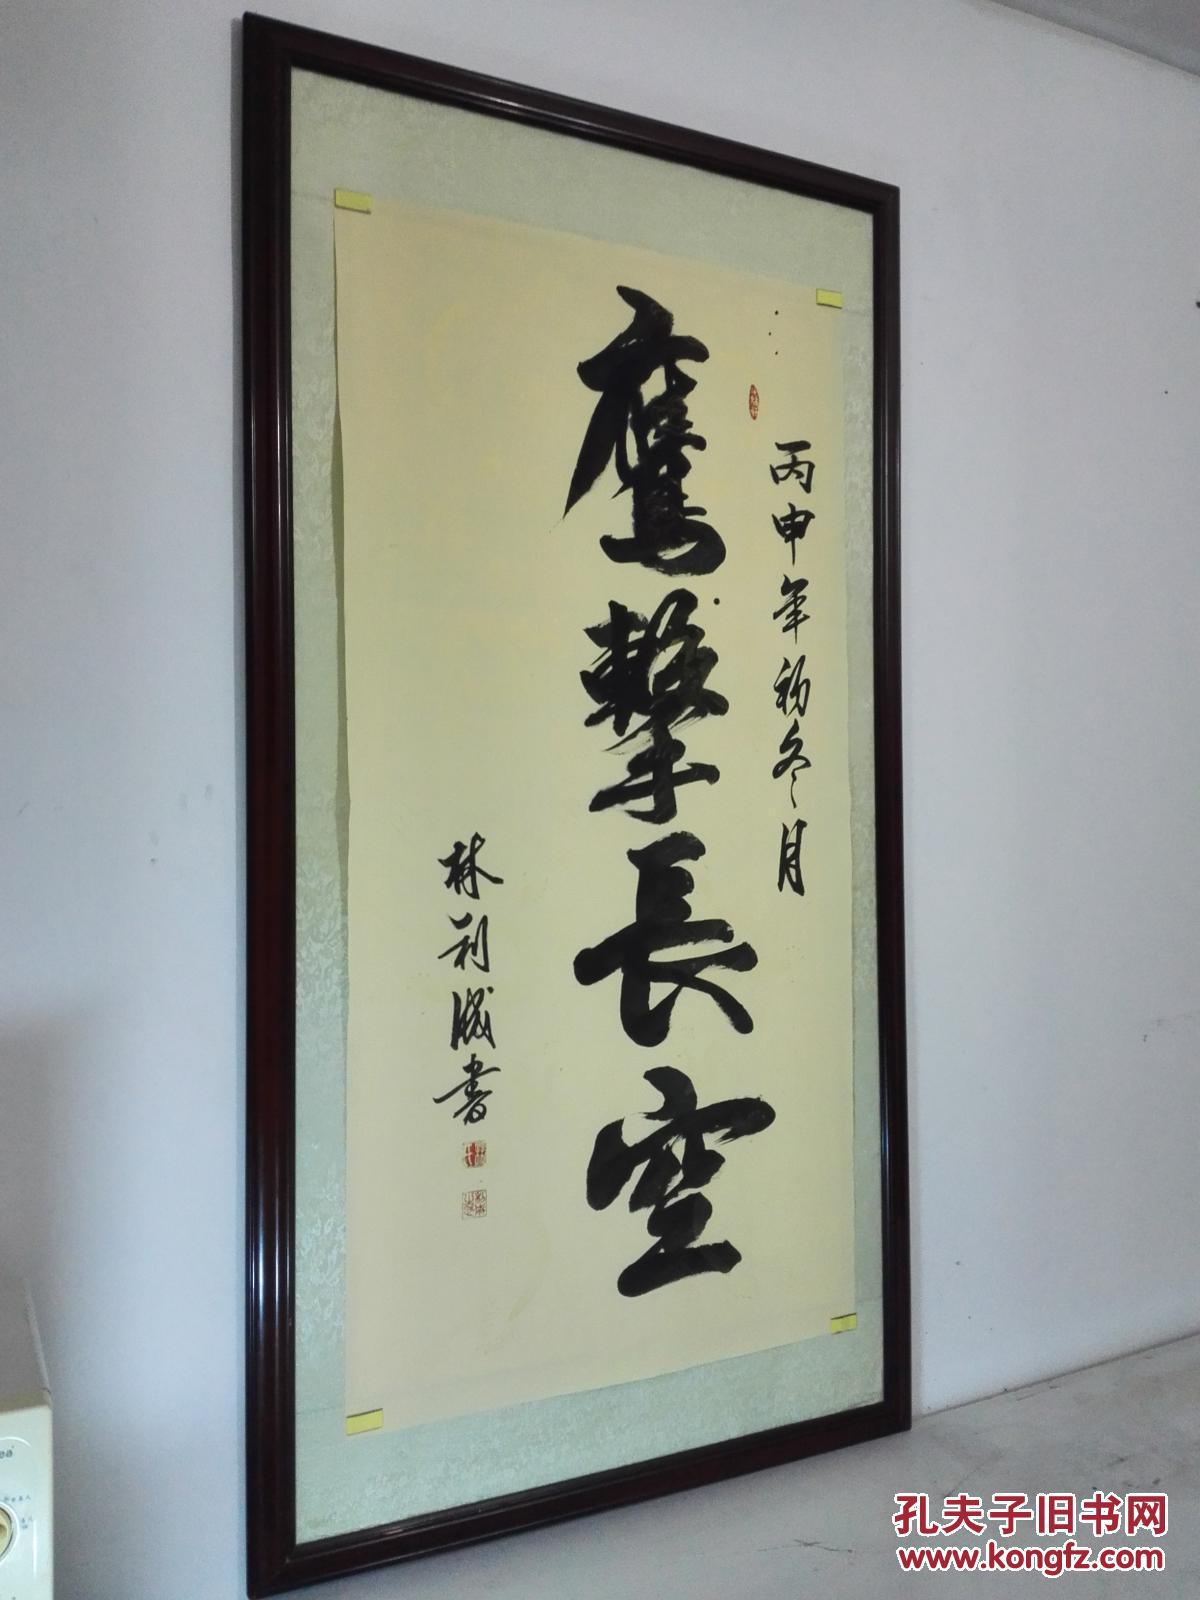 丙申年初冬月
鹰擊長空
林利成書
孔夫子旧书网
www.kongfz.com